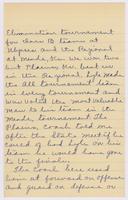 Elimination tournament
for Class B teams at
Ulysses and the Regional
at Meade, Ks. We won two
but Plains, Ks. beat us
in the Regional. Lyle made
the All tournament team
in every tournament and
was voted the most valuable
man to his team in the
Meade tournament. The
Plains coach told me
after the State Meet if he
could of had Lyle on his
team he would have gone
to the finals.
The Coach here used
him at forward on offense
and guard on defense or